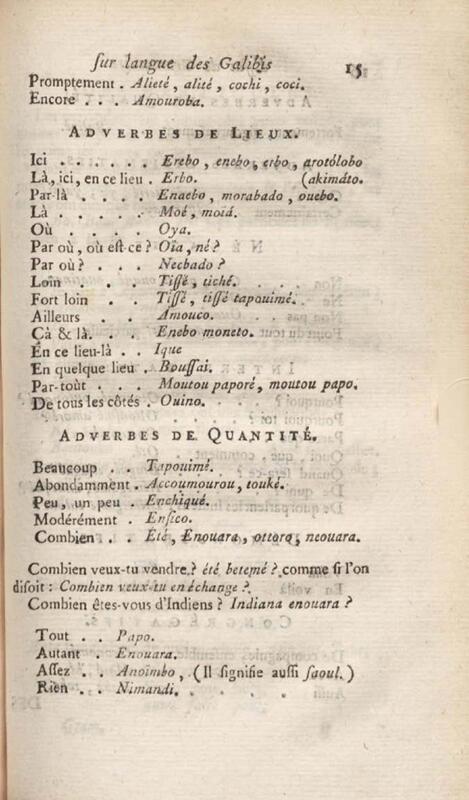 sur langue des Galibis 15
Promptement . Alieté, alité, cochi, coci.
Encore . . . Amouroba.
ADVERBES DE LIEUX.
Ici . . . . . . Erebo, enebo, erbo, arotólobo
Là, ici, en ce lieu . Erbo. (akimáto.
Par-là . . . . Enaebo, morabado, ouebo.
Là . . . . . Moé, moiá.
Où . . . . . Oya.
Par où, où est-ce ? Oïa, né ?
Par où ? . . . Necbado ?
Loin . . . Tissé, tiché.
Fort loin . . Tissé, tissé tapouimé.
Ailleurs . . Amouco.
Çà & là . . . Enebo moneto.
En ce lieu-là . . Ique
En quelque lieu . Boussai.
Par-toût . . . Moutou paporé, moutou papo.
De tous les côtés . Ouino.
ADVERBES DE QUANTITÉ.
Beaucoup . . Tapouimé.
Abondamment . Accoumourou, touké.
Peu, un peu . Enchiqué.
Modérément . Ensico.
Combien . . Été, Enouara, ottoro, neouara.
Combien veux-tu vendre ? été betemé ? comme si l'on
disoit : Combien veux-tu en échange ?
Combien êtes-vous d'Indiens ? Indiana enouara ?
Tout . . Papo.
Autant . Enouara.
Assez . . Anoïmbo, (Il signifie aussi saoul.)
Rien . . Nimandi.